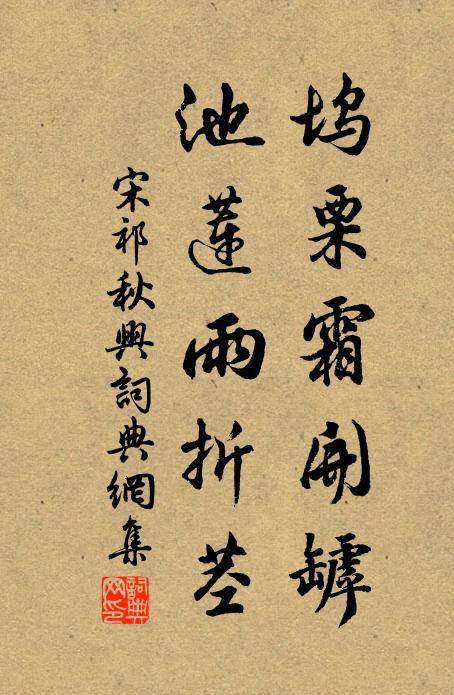 塢栗霜開罅
池蓮雨折莖
宋祁秋興詞典網集
詞典網印